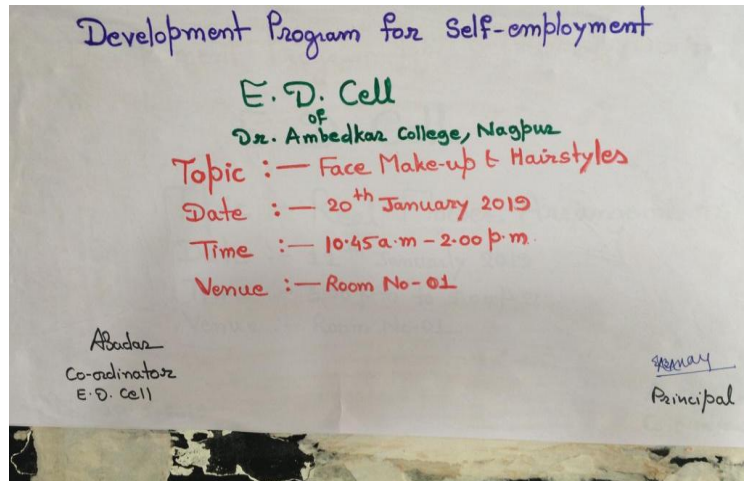 Development Program for Self-employment
E. D. Cell
of
Dr. Ambedkar College, Nagpur
Topic :— Face Make-up & Hairstyles
Date :— 20th January 2019
Time :— 10.45 a.m – 2.00 p.m.
Venue :— Room No-01
Co-ordinator
E.D. Cell
Principal